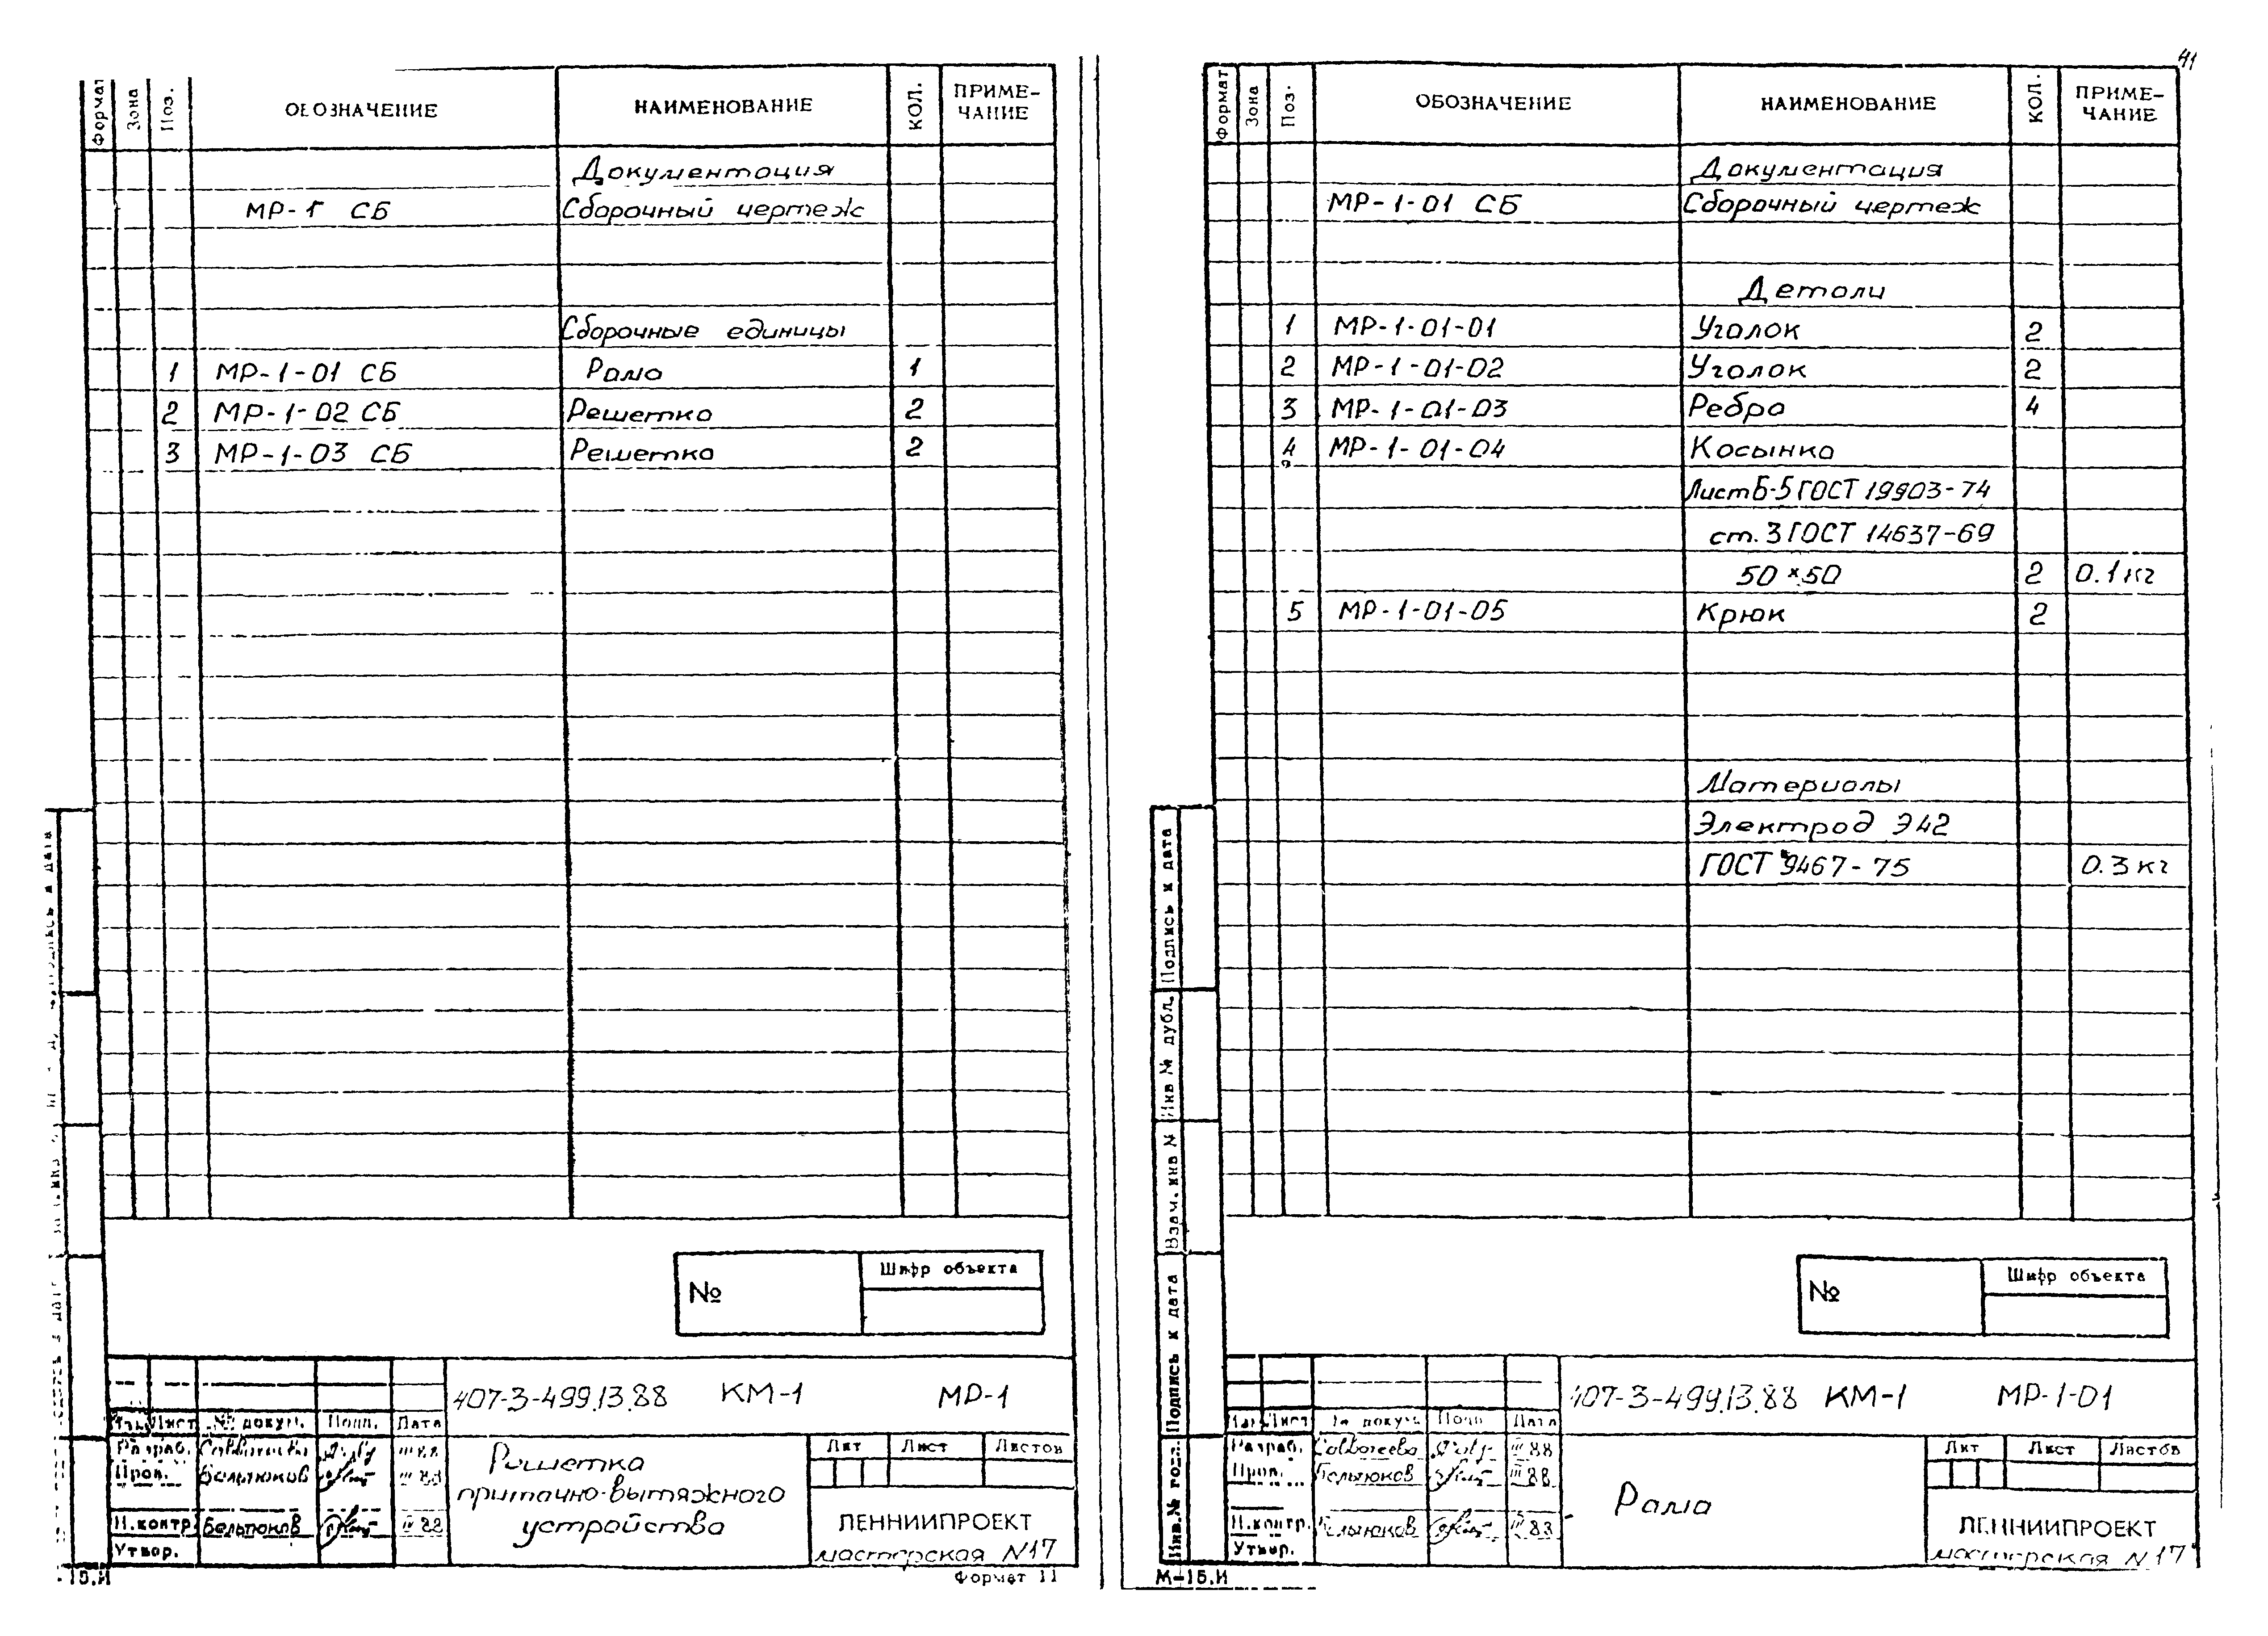 Формат Зона Поз. ОБОЗНАЧЕНИЕ НАИМЕНОВАНИЕ КОЛ. ПРИМЕ-
ЧАНИЕ
Документация
МР-1 СБ Сборочный чертеж
Сборочные единицы
1 МР-1-01 СБ Рама 1
2 МР-1-02 СБ Решетка 2
3 МР-1-03 СБ Решетка 2
№ Шифр объекта
407-3-499.13.88 КМ-1 МР-1
Лист № докум. Подп. Дата
Разраб. III 88
Пров. Бельтюков III 88
Н.контр. Бельтюков III 88
Утвер.
Решетка
приточно-вытяжного
устройства
Лит Лист Листов
ЛЕННИИПРОЕКТ
мастерская N17
Формат 11
41
Формат Зона Поз. ОБОЗНАЧЕНИЕ НАИМЕНОВАНИЕ КОЛ. ПРИМЕ-
ЧАНИЕ
Документация
МР-1-01 СБ Сборочный чертеж
Детали
1 МР-1-01-01 Уголок 2
2 МР-1-01-02 Уголок 2
3 МР-1-01-03 Ребро 4
4 МР-1-01-04 Косынка
Лист Б-5 ГОСТ 19903-74
ст. 3 ГОСТ 14637-69
50×50 2 0.1 кг
5 МР-1-01-05 Крюк 2
Материалы
Электрод Э42
ГОСТ 9467-75 0.3 кг
Подпись и дата
Инв № дубл.
Взам. инв №
Подпись и дата
Инв. № подл.
№ Шифр объекта
407-3-499.13.88 КМ-1 МР-1-01
Лист № докум Подп Дата
Разраб. III 88
Пров. Бельтюков III 88
Н.контр. Бельтюков III 83
Утвер.
Рама
Лит Лист Листов
ЛЕННИИПРОЕКТ
мастерская N17
М-15.И